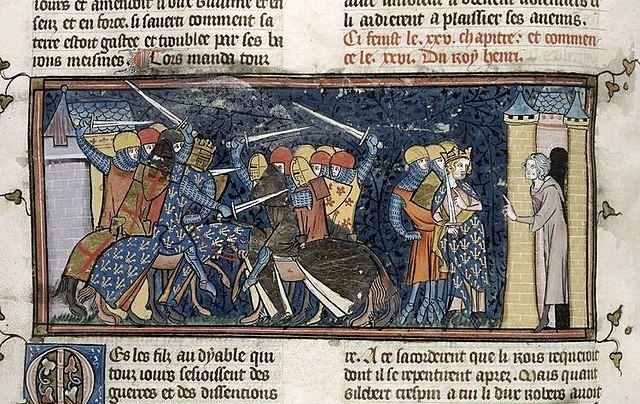 iours et amendoit li dux Guillime et en
seur et en force. si sauerti comment sa
terre estoit gastee et troublee par ses ba
rons meismes. ¶ Lors manda tour
li aidierent a plaissier ses anemis.
Ci fenist le .xxv. chapitre: et commen
ce le .xxvi. Du roy henri.
Mes les filz au dyable qui
touz iours sesioissent des
guerres et des dissentions
re. A ce sacorderent que li rois requeroit
dont il se repentirent aprez. Mais quant
gilebert crespin a cui li dux robers auoit